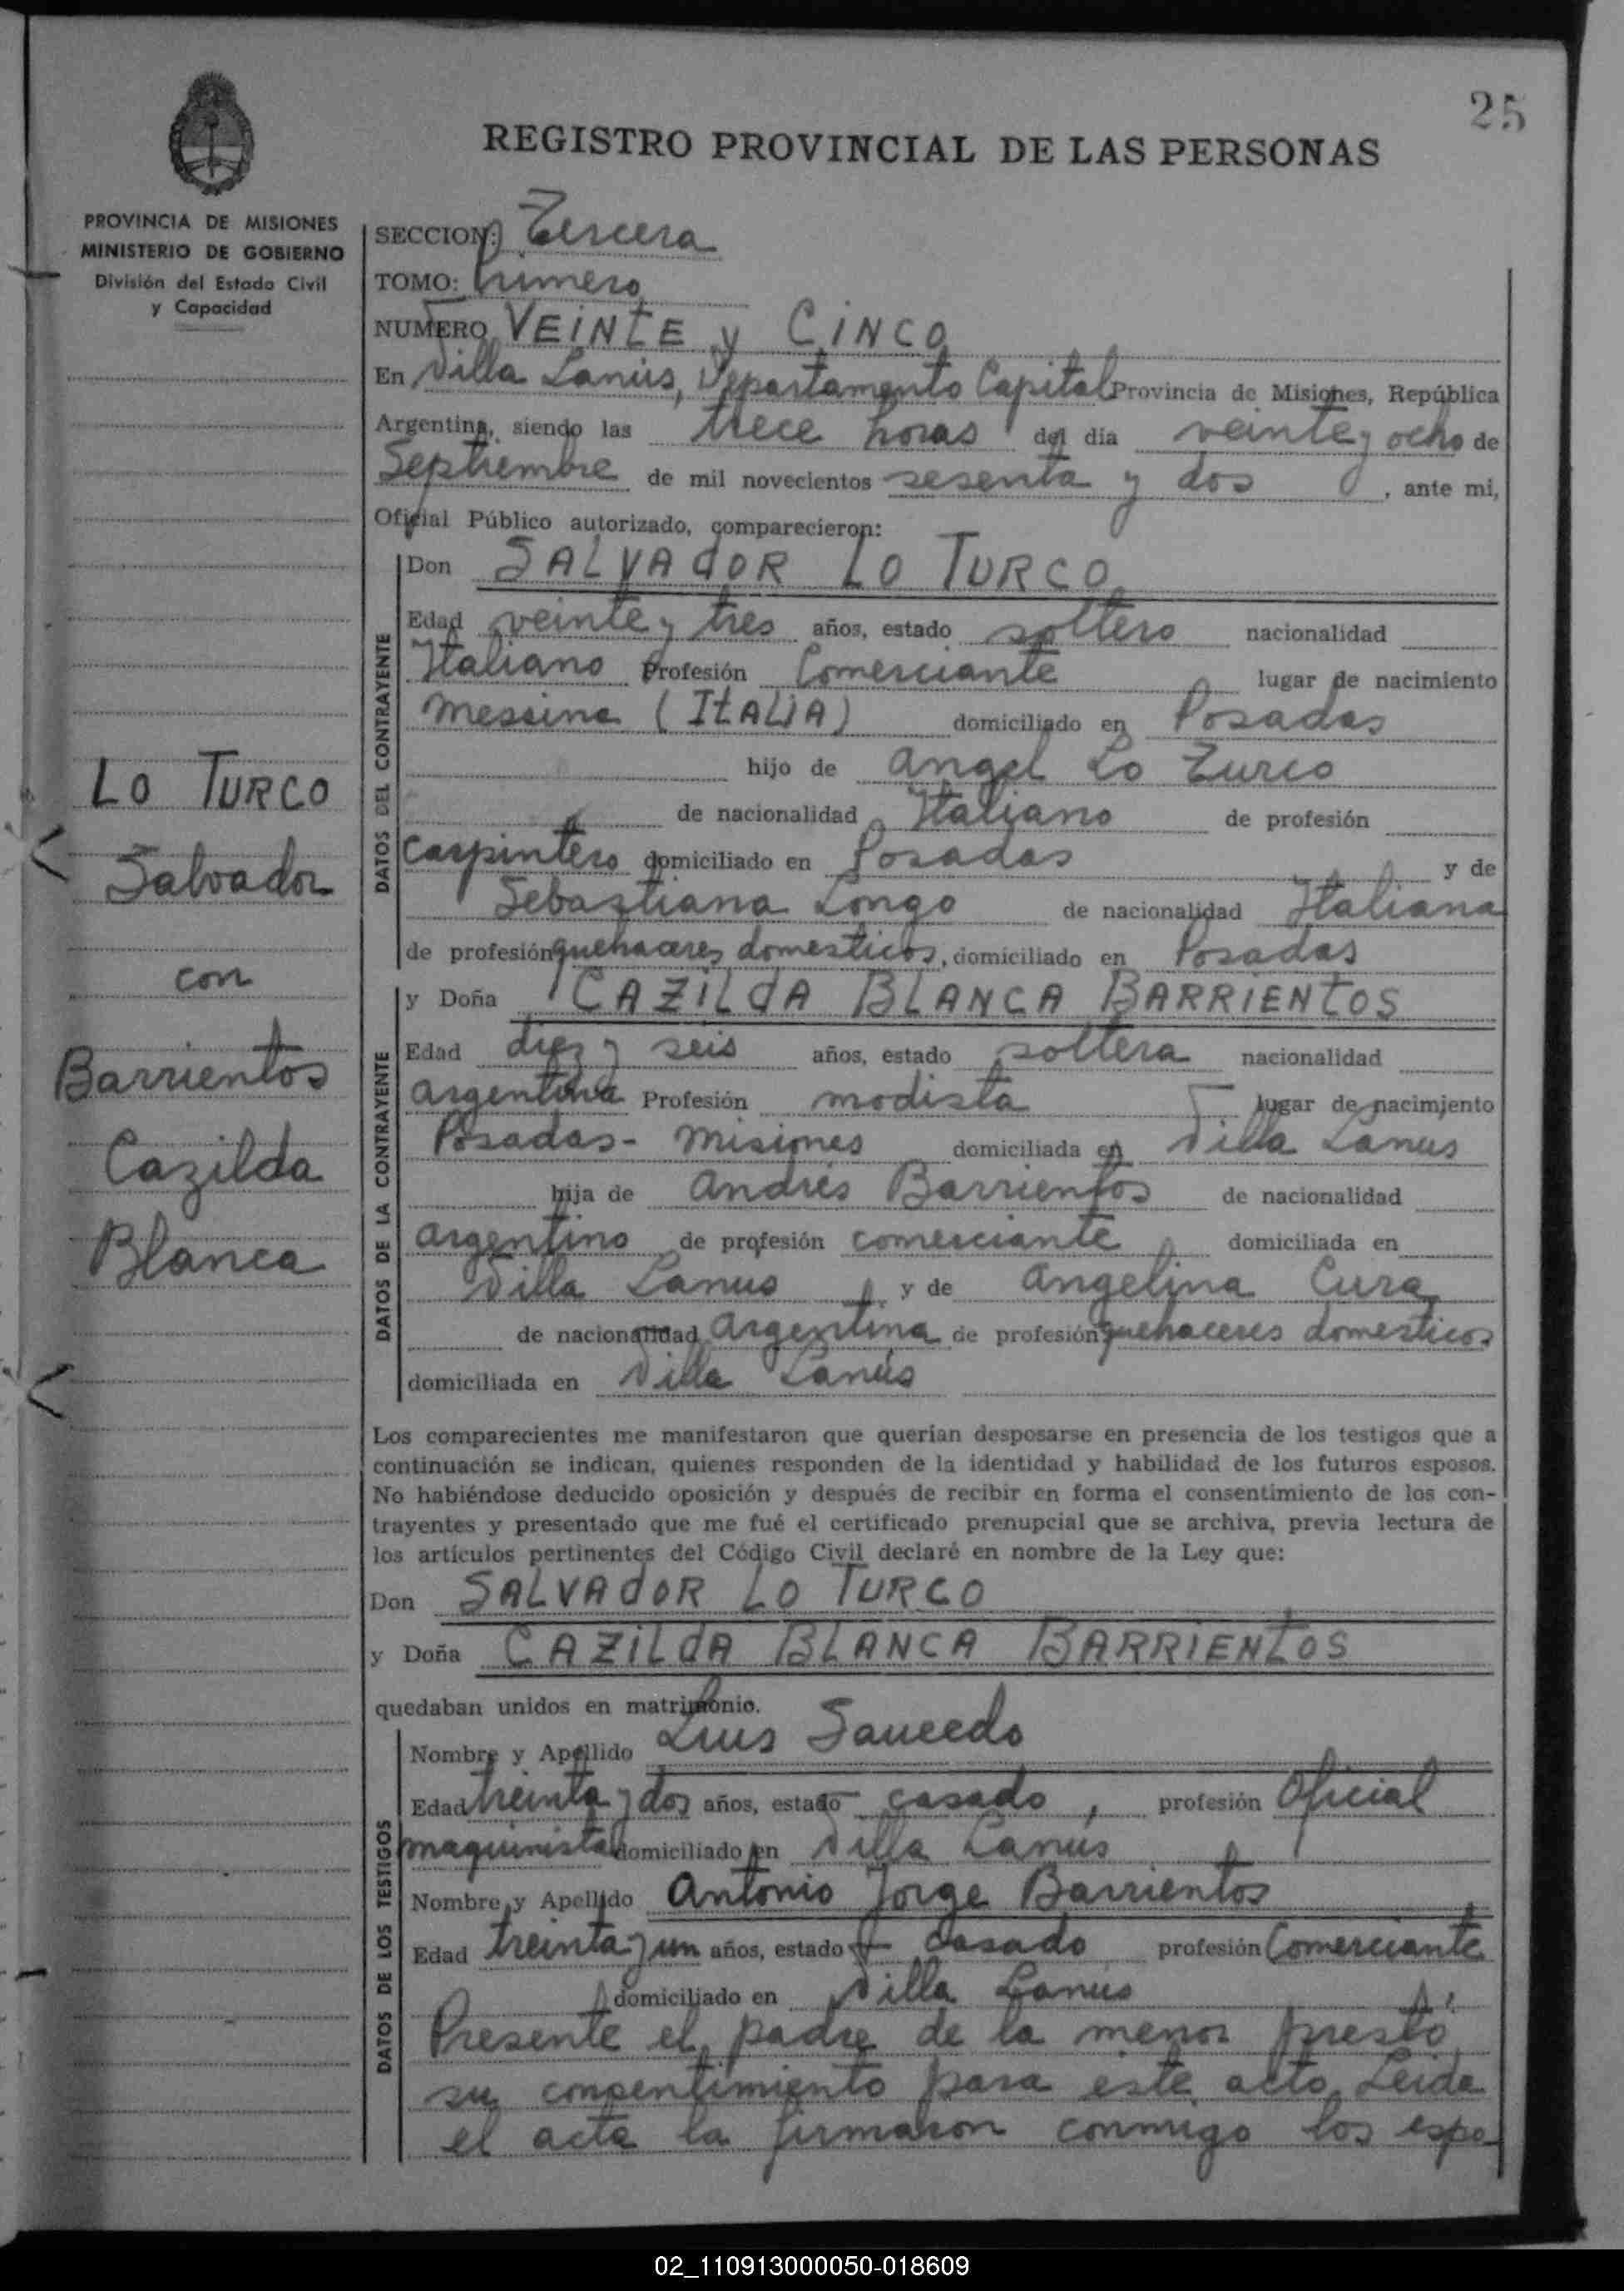 25
REGISTRO PROVINCIAL DE LAS PERSONAS
PROVINCIA DE MISIONES
MINISTERIO DE GOBIERNO
División del Estado Civil
y Capacidad
LO TURCO
Salvador
con
Barrientos
Cazilda
Blanca
SECCION: Tercera
TOMO: primero
NUMERO VEINTE y CINCO
En Villa Lanús, Departamento Capital Provincia de Misiones, República
Argentina, siendo las trece horas del día veinte y ocho de
Septiembre de mil novecientos sesenta y dos, ante mi,
Oficial Público autorizado, comparecieron:
DATOS DEL CONTRAYENTE
Don SALVADOR LO TURCO
Edad veinte y tres años, estado soltero nacionalidad
Italiano Profesión Comerciante lugar de nacimiento
Messina (ITALIA) domiciliado en Posadas
hijo de Angel Lo Turco
de nacionalidad Italiano de profesión
Carpintero domiciliado en Posadas y de
Sebastiana Longo de nacionalidad Italiana
de profesión quehaceres domesticos, domiciliado en Posadas
DATOS DE LA CONTRAYENTE
y Doña CAZILDA BLANCA BARRIENTOS
Edad diez y seis años, estado soltera nacionalidad
argentina Profesión modista lugar de nacimiento
Posadas - Misiones domiciliada en Villa Lanus
hija de Andrés Barrientos de nacionalidad
argentino de profesión comerciante domiciliada en
Villa Lanus y de Angelina Cura
de nacionalidad Argentina de profesión quehaceres domesticos
domiciliada en Villa Lanús
Los comparecientes me manifestaron que querían desposarse en presencia de los testigos que a
continuación se indican, quienes responden de la identidad y habilidad de los futuros esposos.
No habiéndose deducido oposición y después de recibir en forma el consentimiento de los con-
trayentes y presentado que me fué el certificado prenupcial que se archiva, previa lectura de
los artículos pertinentes del Código Civil declaré en nombre de la Ley que:
Don SALVADOR LO TURCO
y Doña CAZILDA BLANCA BARRIENTOS
quedaban unidos en matrimonio.
DATOS DE LOS TESTIGOS
Nombre y Apellido Luis Saucedo
Edad treinta y dos años, estado casado, profesión Oficial
maquinista domiciliado en Villa Lanus
Nombre y Apellido Antonio Jorge Barrientos
Edad treinta y un años, estado casado profesión Comerciante
domiciliado en Villa Lanús
Presente el padre de la menor prestó
su consentimiento para este acto. Leida
el acta la firmaron conmigo los espo
02_110913000050-018609